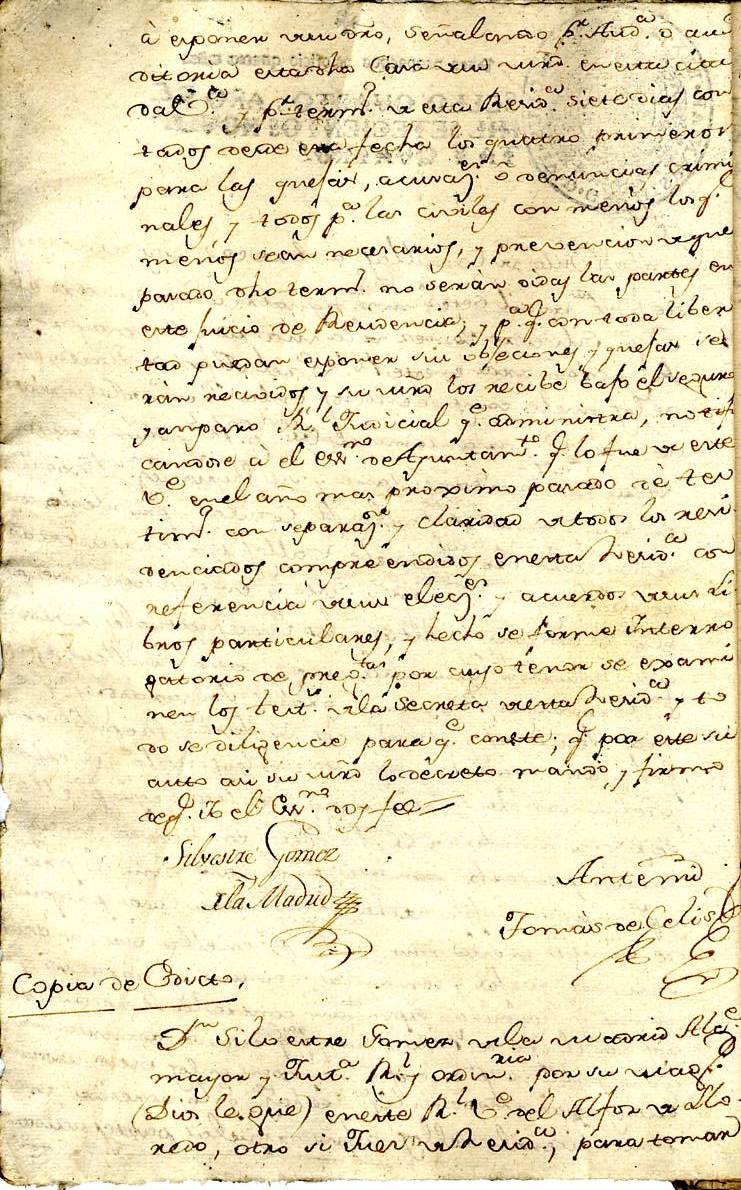 à exponer su dro, señalando pª. Audª. o au
ditoria esta dha Casa de su mrd. en esta ciu
dad ; y pr. termº. de esta Residª. siete dias con
tados desde esta fecha los quatro primeros
para las quejas, acusazes. o denuncias crimi
nales, y todos pª. las civiles con menos los q.
menos sean necesarios, y prevencion de que
pasado dho termº. no seràn oidas las partes en
este Juicio de Residencia; y pª. q. con toda liber
tad puedan exponer sus objeciones y quejas se
ràn recividos y su mrd los recibe bajo el seguro
y amparo Rl. Judicial qe. administra, notifi
candose à el Essno. de Ayuntamto. q. lo fue de este
Ve. en el año mas proximo pasado dè tes
timº. con separazon. y claridad de todos los resi
denciados comprèendidos en esta Residª. con
referencia de sus eleczes. y acuerdos de sus Li
bros particulares, y hecho se forme Interro
gatorio de pregtas. por cuyo tenor se exami
nen los testº. de la Secreta de esta Residª. y to
do se diligencie para qe. conste; q. por este su
auto asi su mrd lo decretò mandò, y firmò
de q. Yo el Essno. doy fee
Silvestre Gomez
de la Madrid
Antemi
Tomàs de Celis
Copia de Edicto.
Dn. Silvestre Gomez de la Madrid Alce.
mayor y Justª. Rl. y ordinria. por su Mag.
(Dios le gue) en este Rl. Ve. del Alfoz de Llo-
redo, otro si Juez de Residª., para tomar